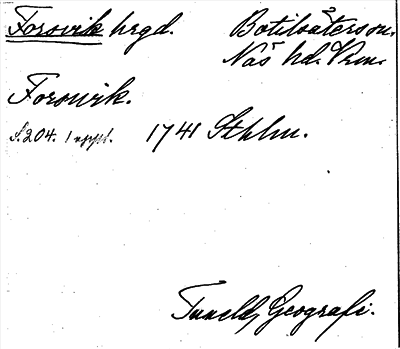 Forsvik hrgd. Botilsäter sn.
Näs hd. Vrm.
Forswik.
S. 204. 1 uppl. 1741 Sthlm.
Tunelds Geografi.